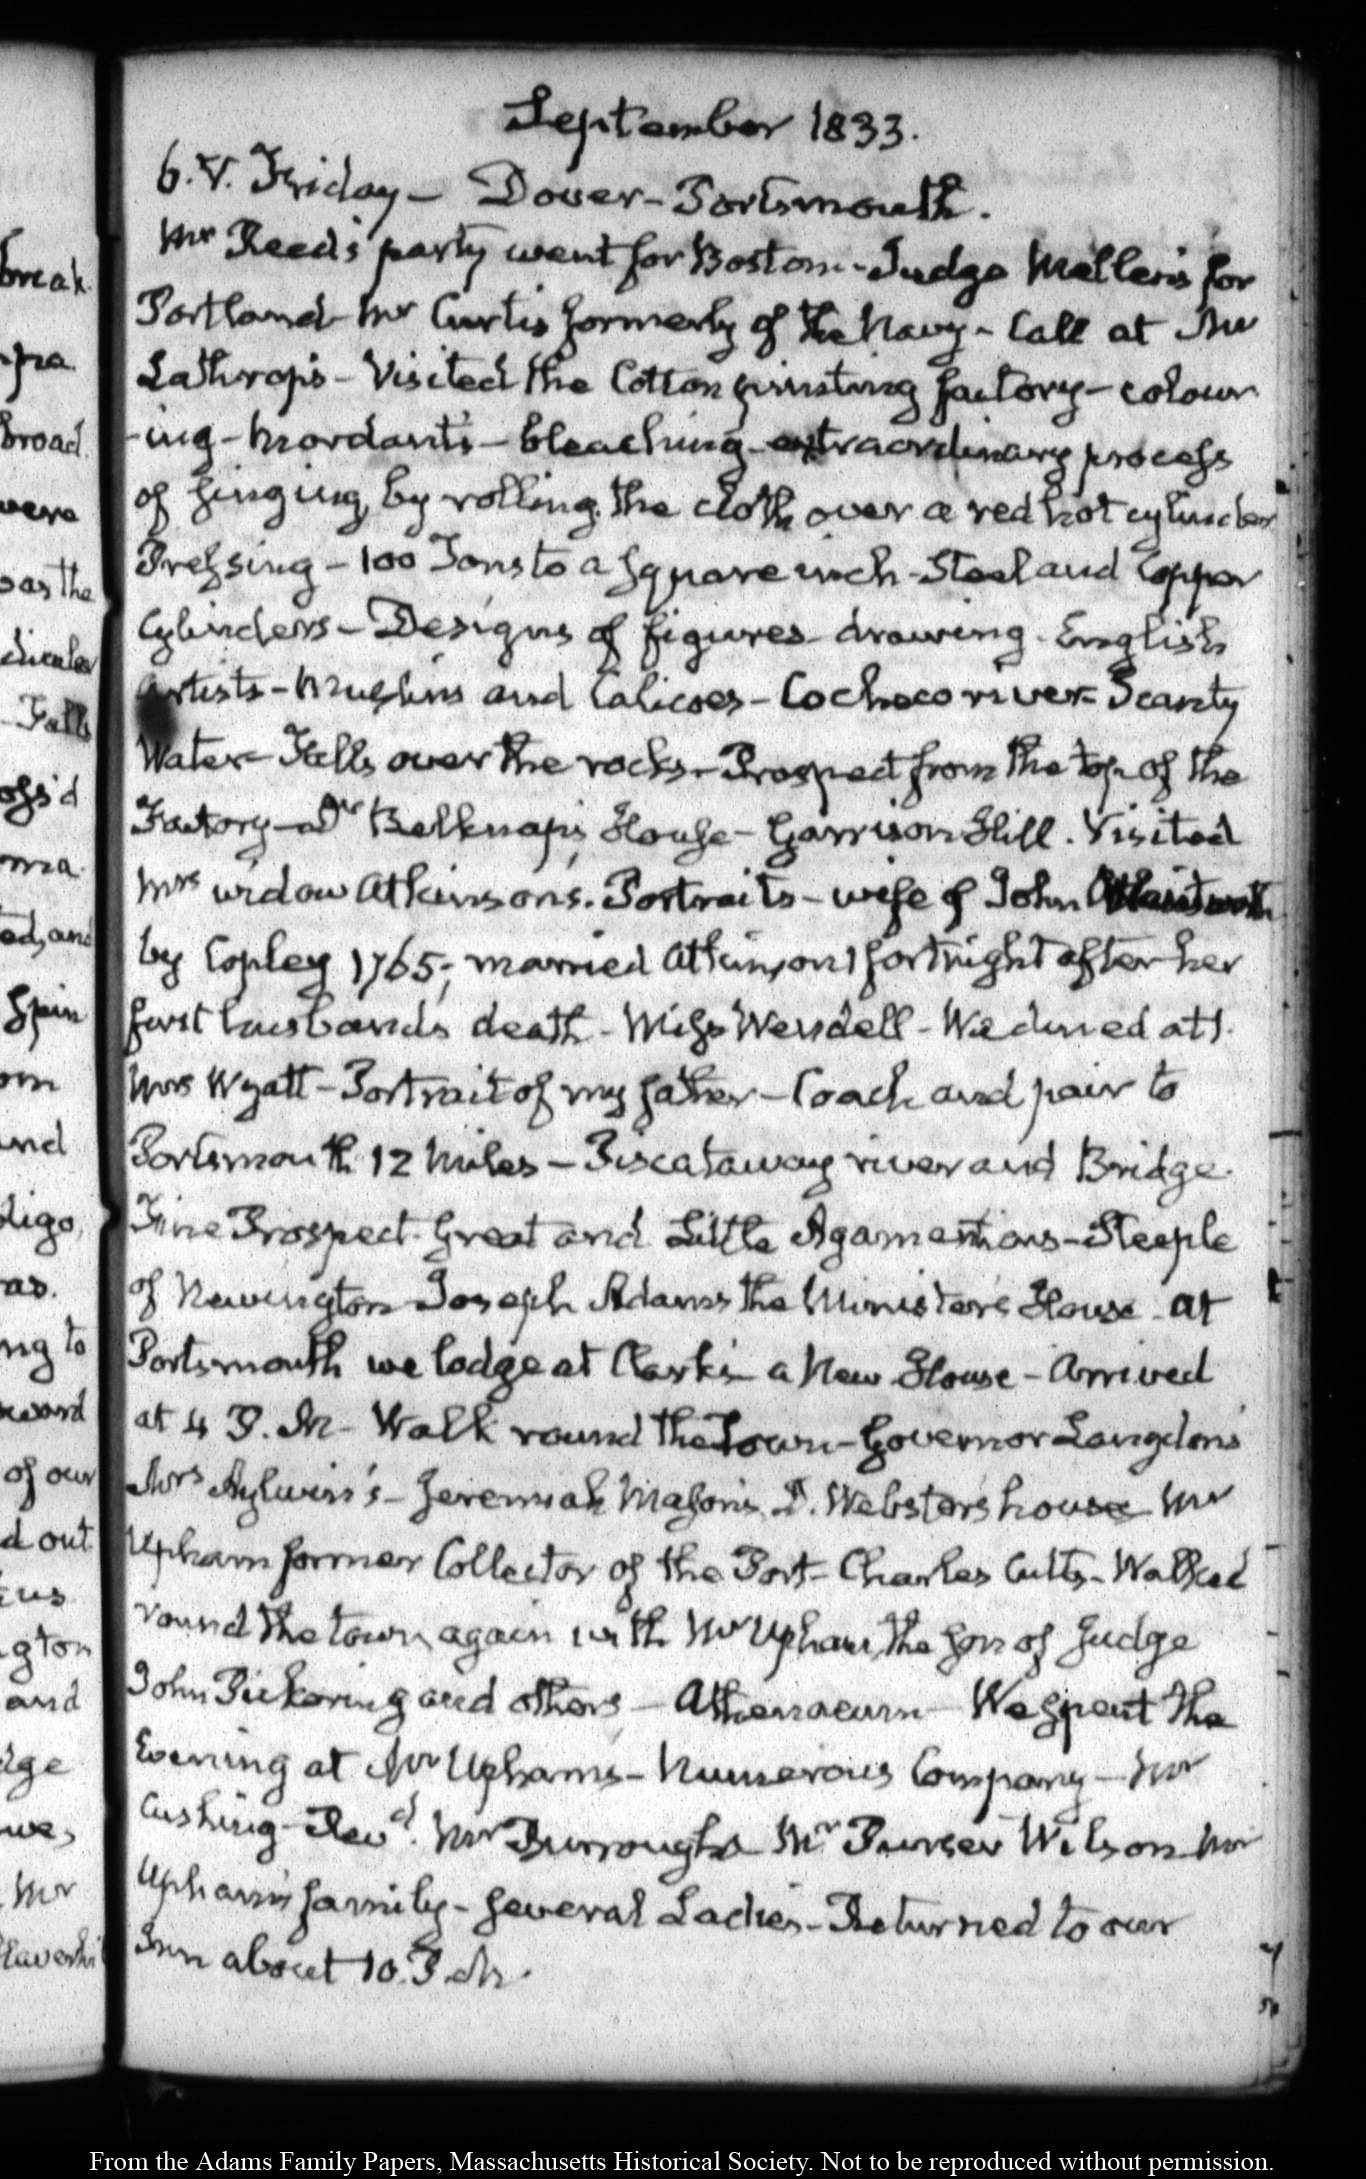 September 1833.
6. V. Friday — Dover — Portsmouth.
Mr Reed's party went for Boston — Judge Mellen's for
Portland — Mr Curtis formerly of the Navy — Call at Mr
Lathrop's — Visited the Cotton printing factory — colour
-ing — Mordants — bleaching — extraordinary process
of singing, by rolling the cloth over a red hot cylinder
Pressing — 100 Tons to a square inch — Steel and Copper
Cylinders — Designs of figures — drawing — English
Artists — Muslins and Calicoes — Cocheco river — Scanty
Water — Falls over the rocks — Prospect from the top of the
Factory — Dr Belknap's House — Garrison Hill. Visited
Mrs widow Atkinson's. Portraits — wife of John
by Copley 1765; married Atkinson 1 fortnight after her
first husband's death — Miss Wendell — We dined at 1.
Mrs Wyatt — Portrait of my father — Coach and pair to
Portsmouth 12 Miles — Piscataway river and Bridge.
Fine Prospect — Great and Little Agamenticus — Steeple
of Newington — Joseph Adams the Minister's House — at
Portsmouth we lodge at Clark's — a New House — Arrived
at 4 P.M — Walk round the Town — Governor Langdon's
Mrs Aylwin's — Jeremiah Mason's, D. Webster's house Mr
Upham former Collector of the Port — Charles Cutts — Walked
round the town again with Mr Upham, the son of Judge
John Pickering and others — Athenaeum — We spent the
Evening at Mr Upham's — Numerous Company — Mr
Cushing — Revd. Mr Burroughs Mr Purser Wilson — Mr
Upham's family — several Ladies — Returned to our
Inn about 10. P.M.
break
broad
were
as the
Falls
ed, and
Spain
and
ng to
of our
d out
us
and
Mr
From the Adams Family Papers, Massachusetts Historical Society. Not to be reproduced without permission.